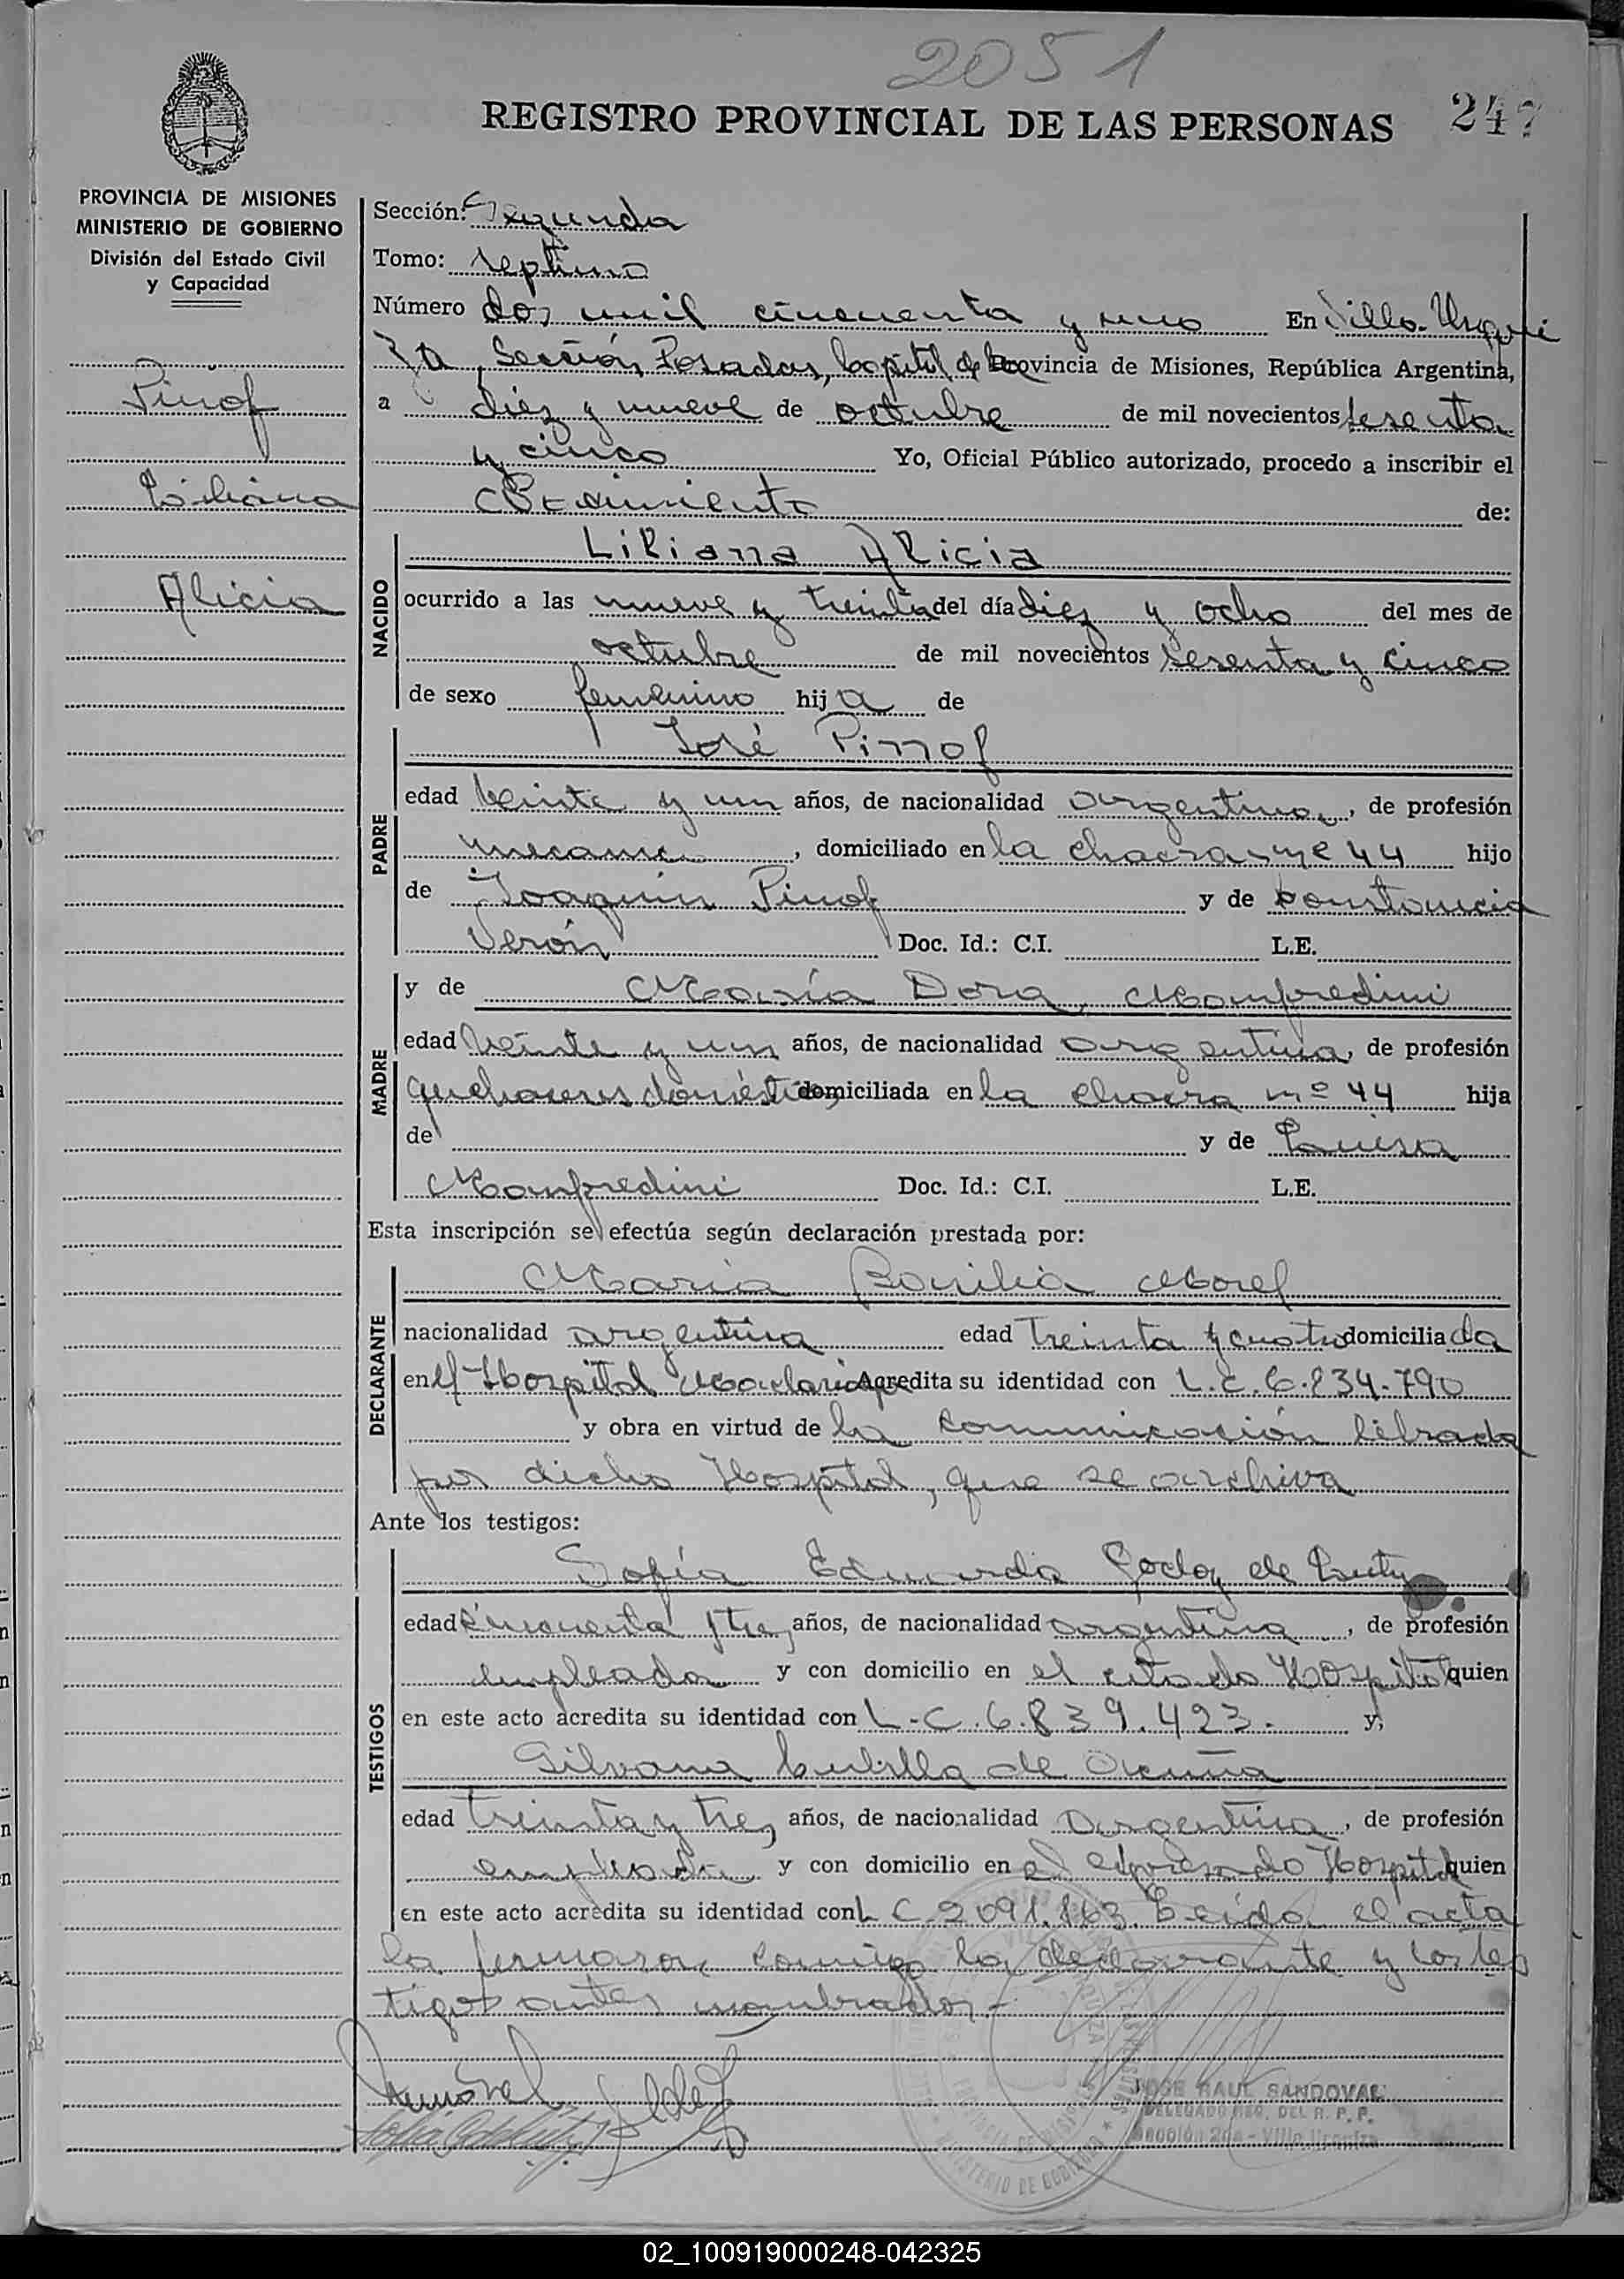 2051
REGISTRO PROVINCIAL DE LAS PERSONAS 247
PROVINCIA DE MISIONES
MINISTERIO DE GOBIERNO
División del Estado Civil
y Capacidad
Pinof
Liliana
Alicia
Sección: Segunda
Tomo: septimo
Número dos mil cincuenta y uno En Villa
Sección Posadas, Capital de Provincia de Misiones, República Argentina,
a diez y nueve de octubre de mil novecientos sesenta
y cinco Yo, Oficial Público autorizado, procedo a inscribir el
Nacimiento de:
NACIDO
Liliana Alicia
ocurrido a las nueve y treinta del día diez y ocho del mes de
octubre de mil novecientos sesenta y cinco
de sexo femenino hija de
PADRE
José Pinof
edad veinte y un años, de nacionalidad argentino, de profesión
mecanico, domiciliado en la chacra nº 44 hijo
de Joaquín Pinof y de Constancia
Verón Doc. Id.: C.I. L.E.
MADRE
y de María Dora Manfredini
edad veinte y un años, de nacionalidad argentina, de profesión
quehaceres domésticos domiciliada en la chacra nº 44 hija
de y de Luisa
Manfredini Doc. Id.: C.I. L.E.
Esta inscripción se efectúa según declaración prestada por:
DECLARANTE
María Morel
nacionalidad argentina edad treinta y cuatro domiciliada
en el Hospital Madariaga Acredita su identidad con L.C. 6.834.790
y obra en virtud de la comunicación librada
por dicho Hospital, que se archiva
Ante los testigos:
TESTIGOS
Sofía Eduarda Godoy de
edad cincuenta y tres años, de nacionalidad argentina, de profesión
empleada y con domicilio en el citado Hospital quien
en este acto acredita su identidad con L.C. 6.839.423. y;
Silvana de Ocuña
edad treinta y tres años, de nacionalidad argentina, de profesión
empleada y con domicilio en el expresado Hospital quien
en este acto acredita su identidad con L C 2.091.163. Leída el acta
la firmaron conmigo la declarante y los tes
tigos antes nombrados.-
JOSE RAUL SANDOVAL
DELEGADO REG. DEL R. P. P.
Sección 2da - Villa Urquiza
PROVINCIA DE MISIONES
MINISTERIO DE GOBIERNO
02_100919000248-042325